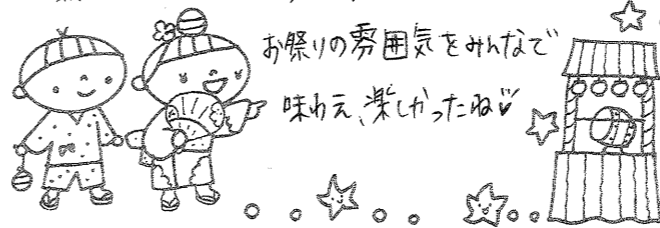 お祭りの雰囲気をみんなで
味わえ、楽しかったね♡